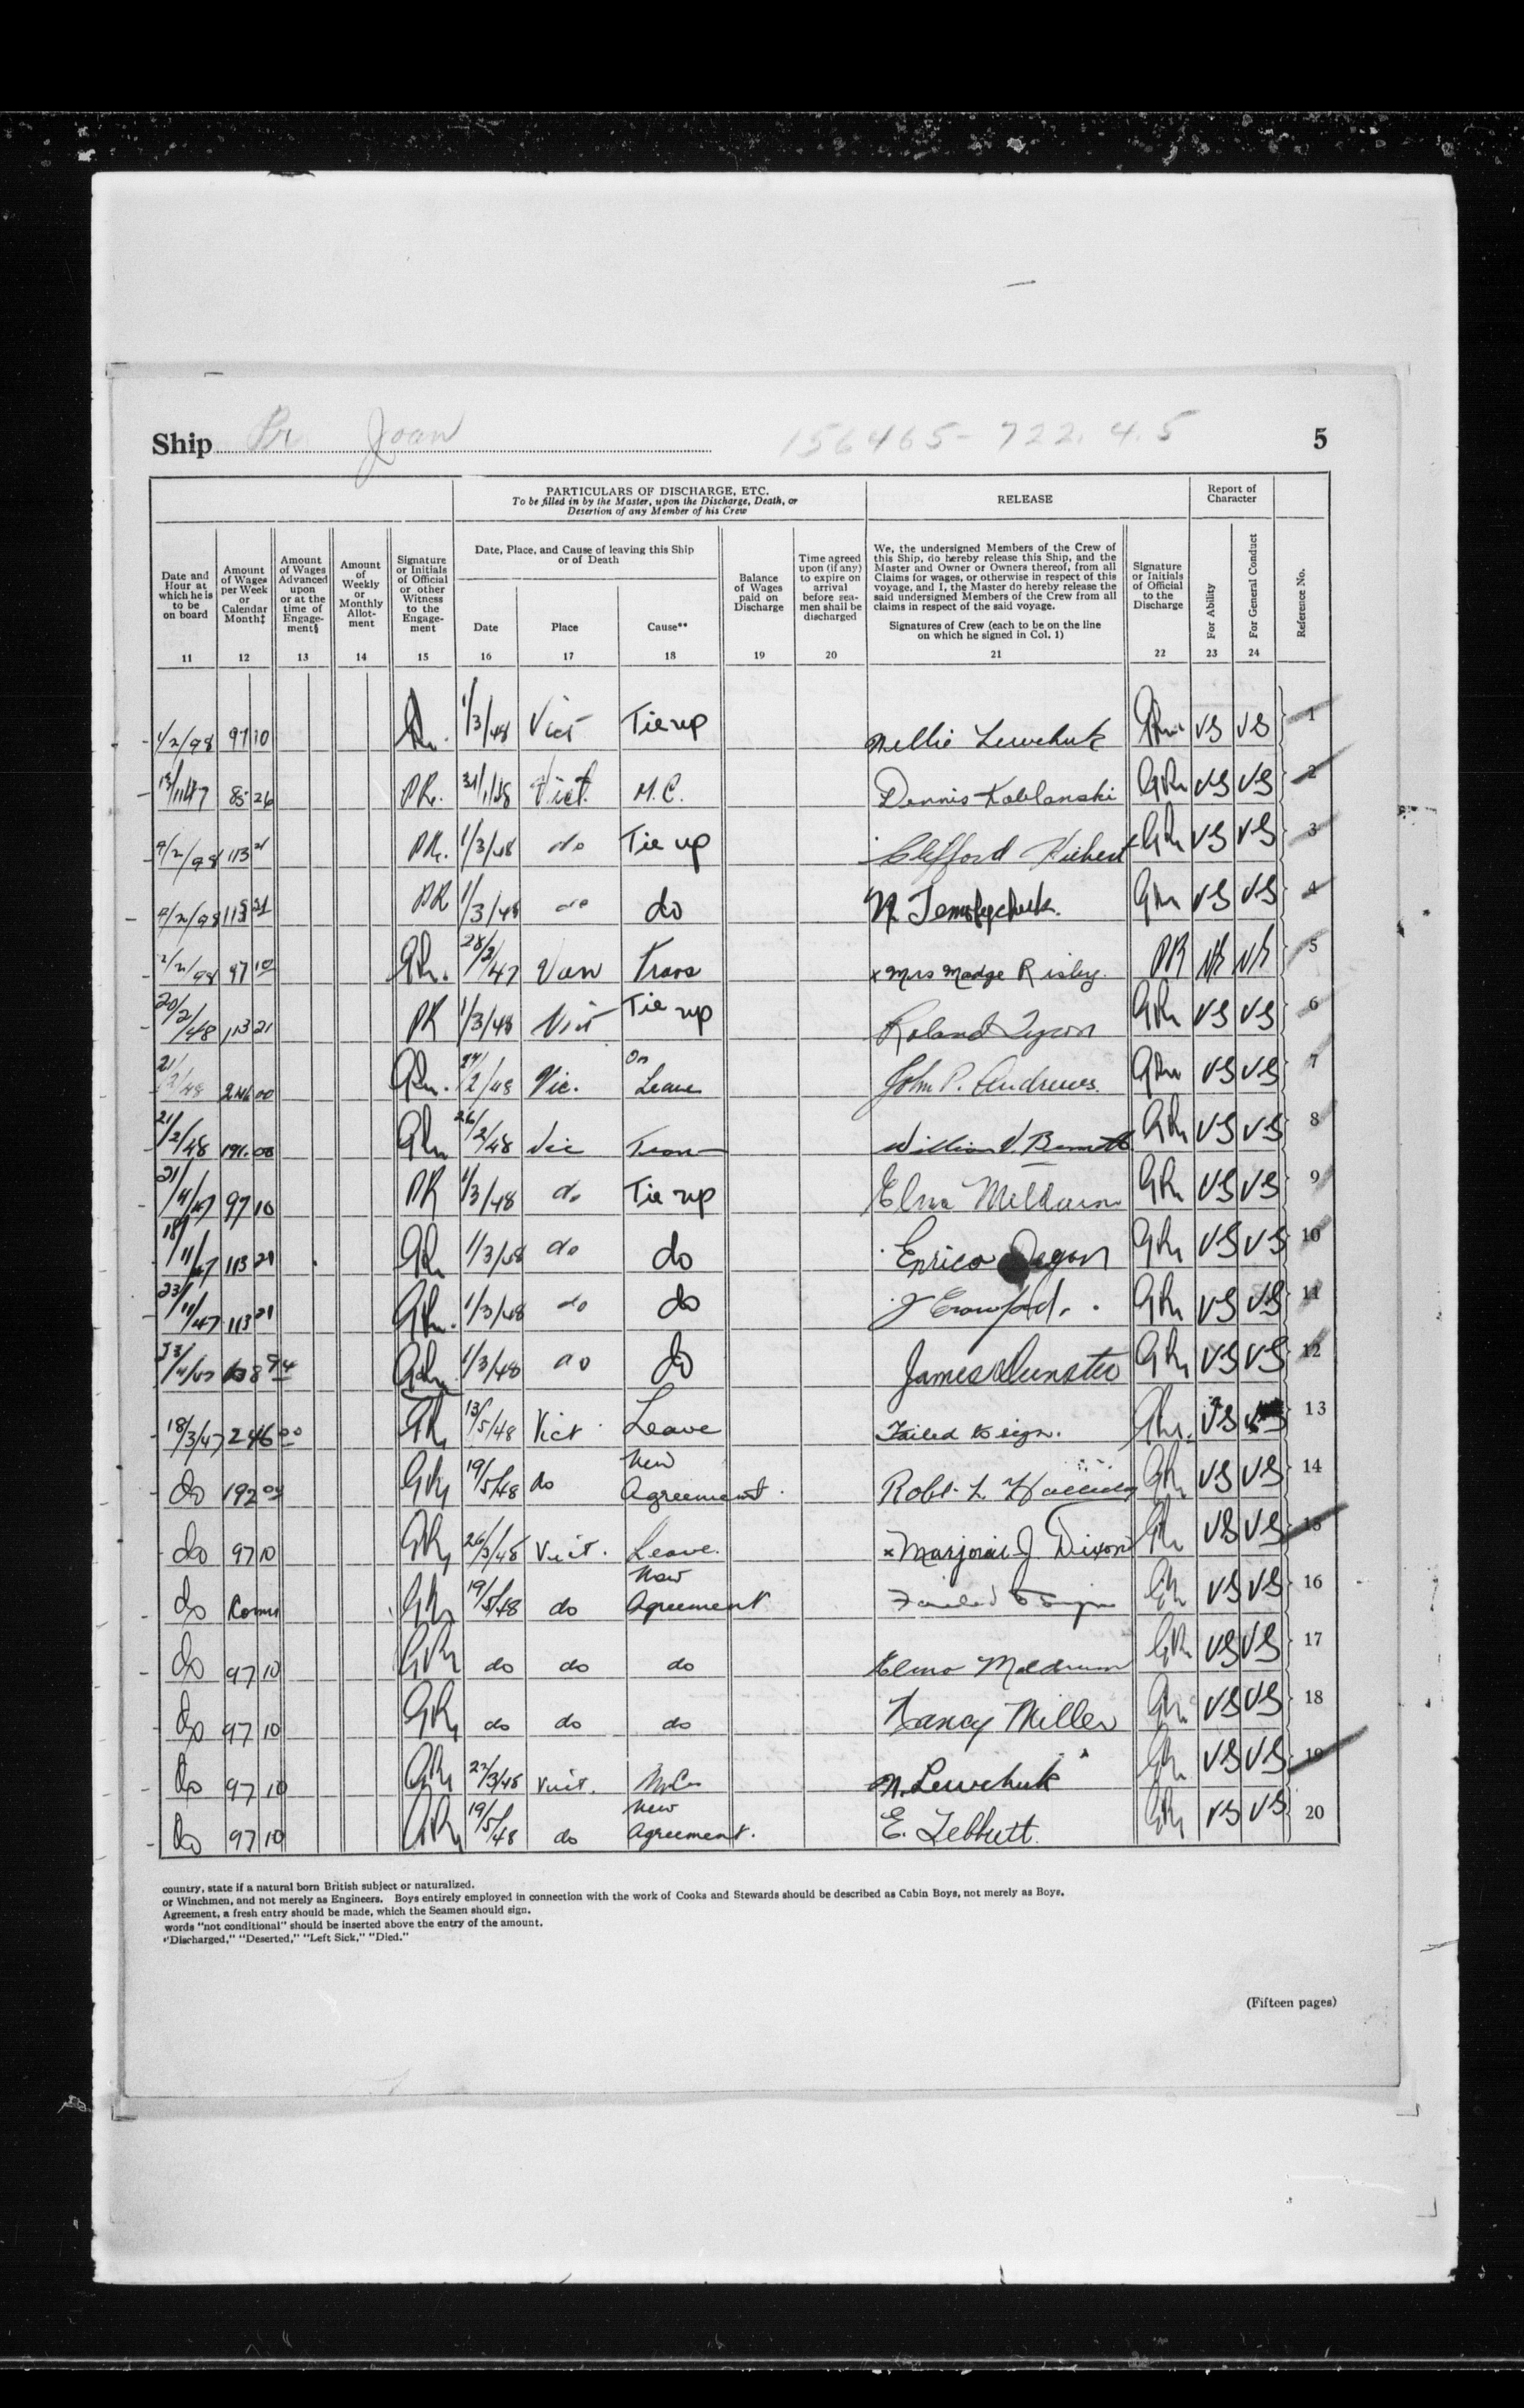 Ship Pr Joan 156465 - 722. 4. 5 5
PARTICULARS OF DISCHARGE, ETC.
To be filled in by the Master, upon the Discharge, Death, or
Desertion of any Member of his Crew
RELEASE
Report of
Character
Date and
Hour at
which he is
to be
on board
Amount
of Wages
per Week
or
Calendar
Month‡
Amount
of Wages
Advanced
upon
or at the
time of
Engage-
ment§
Amount
of
Weekly
or
Monthly
Allot-
ment
Signature
or Initials
of Official
or other
Witness
to the
Engage-
ment
Date, Place, and Cause of leaving this Ship
or of Death
Date
Place
Cause**
Balance
of Wages
paid on
Discharge
Time agreed
upon (if any)
to expire on
arrival
before sea-
men shall be
discharged
We, the undersigned Members of the Crew of
this Ship, do hereby release this Ship, and the
Master and Owner or Owners thereof, from all
Claims for wages, or otherwise in respect of this
voyage, and I, the Master do hereby release the
said undersigned Members of the Crew from all
claims in respect of the said voyage.
Signatures of Crew (each to be on the line
on which he signed in Col. 1)
Signature
or Initials
of Official
to the
Discharge
For Ability
For General Conduct
Reference No.
11 12 13 14 15 16 17 18 19 20 21 22 23 24
97 10 1/3/48 Vict Tie up Nellie Lewchuk VS VS 1
85 26 PR. 31/1/48 Vict. M.C. Dennis Koblanski GRn VS VS 2
113 21 PR. 1/3/48 do Tie up Clifford GRn VS VS 3
113 21 PR 1/3/48 do do N GRn VS VS 4
97 10 GRn. Van Trans x Mrs Madge Risley. PR 5
20/2/48 113 21 PR 1/3/48 Vict Tie up Roland GRn VS VS 6
21/2/48 246 00 GRn. 2/48 Vic. On Leave John P. Andrews. GRn VS VS 7
21/2/48 GRn 26/2/48 Vic Tran William V. GRn VS VS 8
97 10 PR 1/3/48 do Tie up Elma GRn VS VS 9
18/11/47 113 21 GRn 1/3/48 do do Enrico GRn VS VS 10
23/11/47 113 21 GRn. 1/3/48 do do J Crawford. GRn VS VS 11
GRn 1/3/48 do do James Dunster GRn VS VS 12
18/3/47 246 00 GRn 13/5/48 Vict Leave Failed to sign. GRn. VS 13
do 192 GRn 19/5/48 do New Agreement. Robt. L. GRn VS VS 14
do 97 10 GRn 26/3/48 Vict. Leave. x Marjorie J. Dixon GRn VS VS 15
do GRn 19/5/48 do New Agreement Failed to sign GRn VS VS 16
do 97 10 GRn do do do Elma Meldrum GRn VS VS 17
do 97 10 GRn do do do Nancy Miller GRn VS VS 18
do 97 10 GRn 22/3/48 Vict. M.C. N. Lewchuk GRn VS VS 19
do 97 10 GRn 19/5/48 do New Agreement. E. Tebbutt. GRn VS VS 20
country, state if a natural born British subject or naturalized.
or Winchmen, and not merely as Engineers. Boys entirely employed in connection with the work of Cooks and Stewards should be described as Cabin Boys, not merely as Boys.
Agreement, a fresh entry should be made, which the Seamen should sign.
words "not conditional" should be inserted above the entry of the amount.
"Discharged," "Deserted," "Left Sick," "Died."
(Fifteen pages)